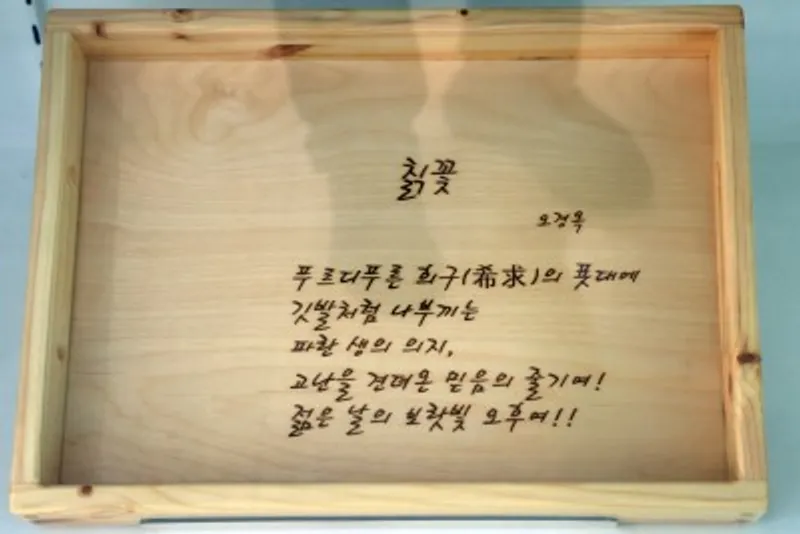 칡꽃
오경옥
푸르디푸른 희구(希求)의 푯대에
깃발처럼 나부끼는
파란 생의 의지,
고난을 견뎌온 믿음의 줄기여!
젊은 날의 보랏빛 오후여!!